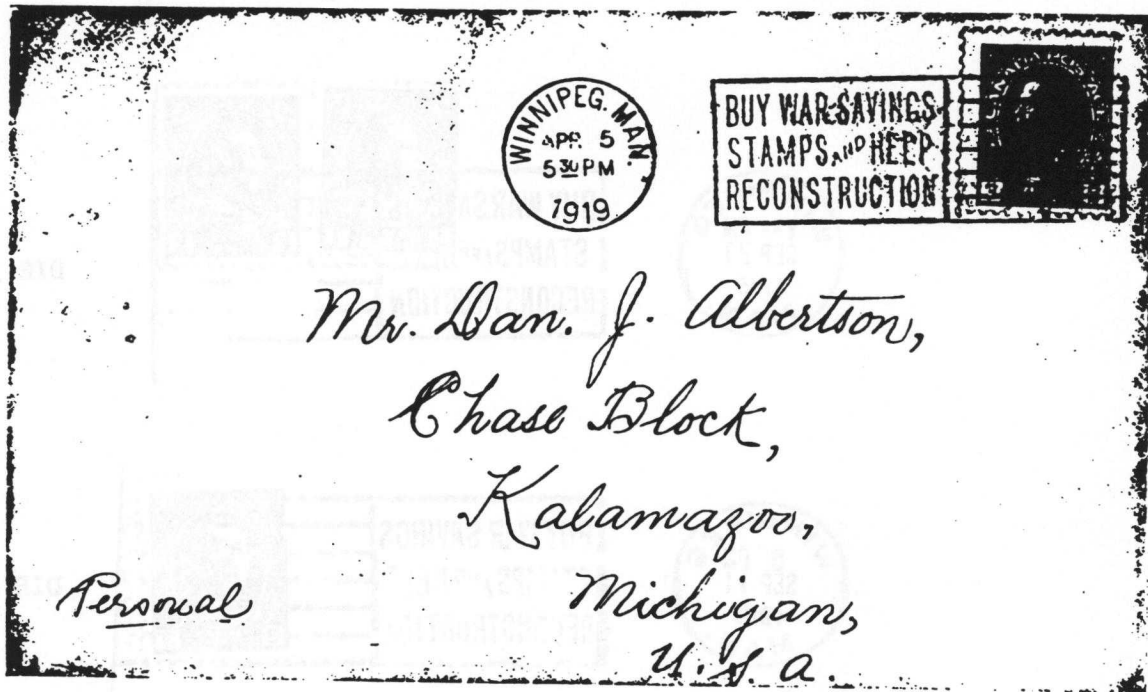 WINNIPEG. MAN.
APR 5
5 30 PM
1919
BUY WAR SAVINGS
STAMPS AND HELP
RECONSTRUCTION
Mr. Dan. J. Albertson,
Chase Block,
Kalamazoo,
Michigan,
U.S.A.
Personal